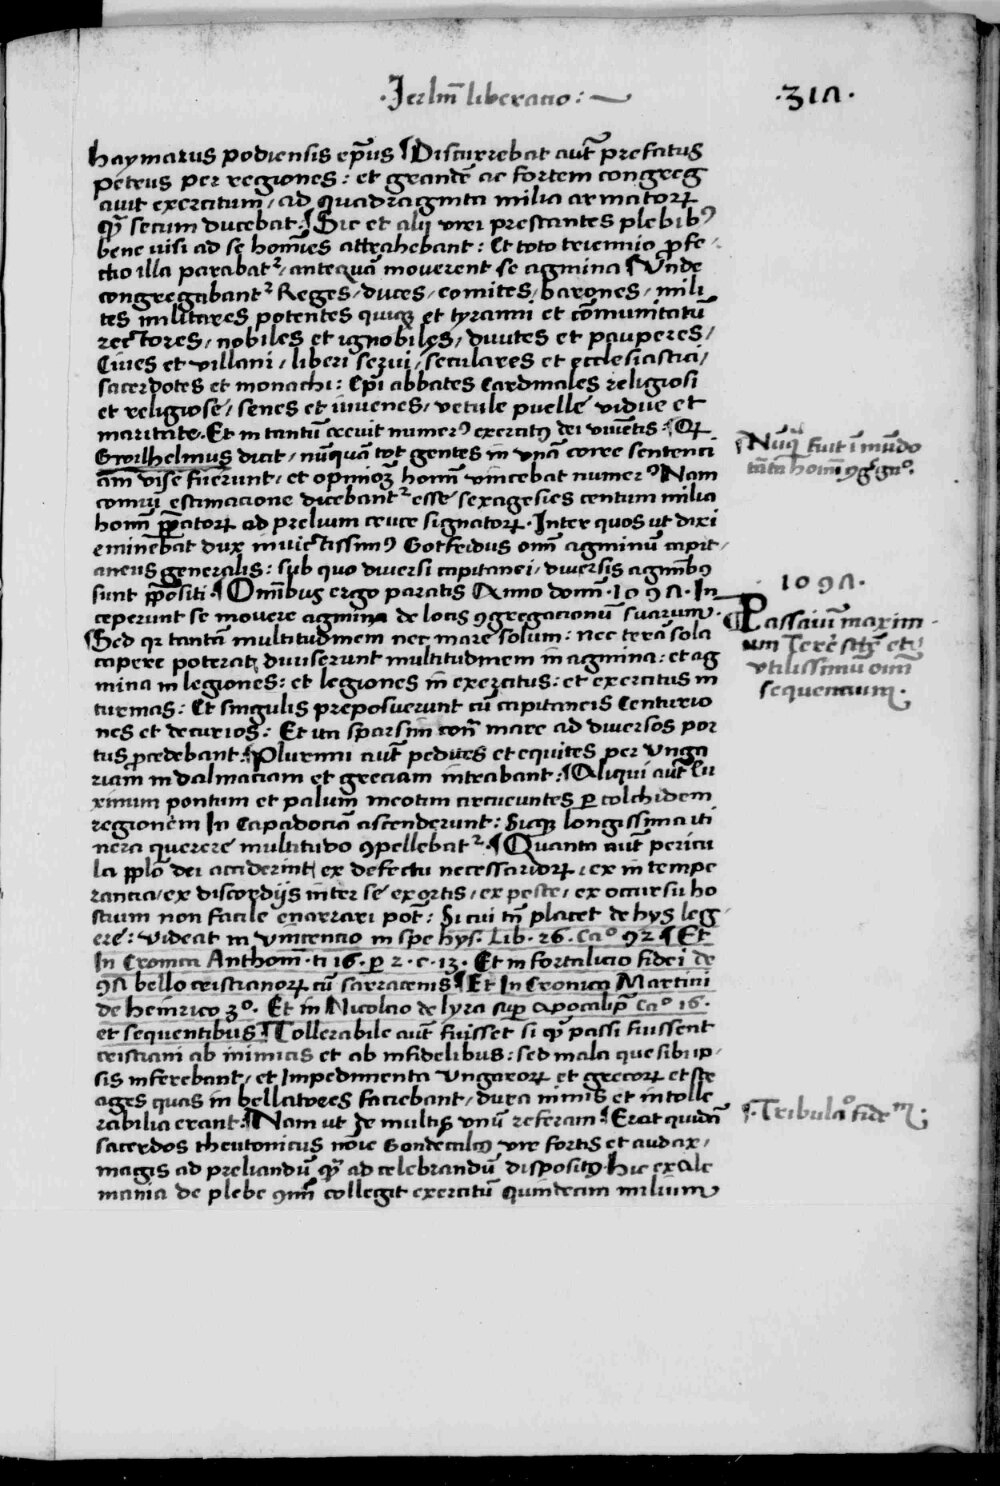 ·Jerlm̄ liberatio:~
·317·
haymarus podiensis ep̄us ¶Discurrebat aut̄ prefatus
petrus per regiones: et grandē ac fortem congreg
auit exercitum / ad quadraginta milia armatoꝝ
qꝫ secum ducebat. ¶Sic et alij viri prestantes plebibꝰ
bene visi ad se hom̄ies attrahebant: Et toto triennio ꝓfe
ctio illa parabat᷑ / antequā moverent se agmina ¶Unde
congregabant᷑ Reges / duces / comites / barones / mili
tes militares potentes quiqꝫ et tyranni et cōmunitatū
rectores / nobiles et ignobiles / divites et pauperes /
Cives et villani / liberi servi / seculares et ecclesiastici /
sacerdotes et monachi: Ep̄i abbates Cardinales religiosi
et religiose / senes et iuvenes / vetule puelle vidue et
maritate. Et in tantū crevit numerꝰ exercitꝰ dei viuētis. ¶Qꝫ
Gwilhelmus dicit / nūquā tot gentes in unā coire sentenci
am vise fuerunt / et opinioꝫ hom̄ vincebat numerꝰ Nam
comūi estimacione dicebant᷑ esse sexagesies centum milia
hom̄ ꝓatoꝝ ad prelium cruce signatoꝝ. Inter quos ut dixi
eminebat dux invictissimꝰ Gotfridus om̄ agminū capit
aneus generalis: sub quo diversi capitanei / diversis agmībꝰ
sunt ꝓpositi. ¶Om̄ibus ergo paratis Anno domī. 1097. In
ceperunt se movere agmina de locis ꝯgregacionū suarum.
¶Sed qꝛ tantā multitudinem nec mare solum: nec terra sola
capere poterat / diviserunt multitudinem in agmina: et ag
mina in legiones: et legiones in exercitus: et exercitus in
turmas: Et singulis preposuerunt cū capitaneis Centurio
nes et decurios: Et ita sparsim con̄ mare ad diversos por
tus ꝓcedebant. ¶Plurimi aut̄ pedites et equites per Unga
riam in dalmaciam et greciam intrabant: ¶Aliqui aut̄ Eu
ximum pontum et palum meotim circueuntes ꝑ colchidem
regionem In Capadociā ascenderunt: Sicqꝫ longissima iti
nera querere multitudo ꝯpellebat᷑. ¶Quanta aut̄ pericu
la ꝓplo dei acciderint / ex defectu necessarioꝝ / ex intempe
rancia / ex discordijs inter se exortis / ex peste / ex occursu ho
stium non facile enarrari pot̄: Si cui tn̄ placet de hys leg
ere: videat in Vincencio in spe hys. Lib. 26. Caº 92 ¶Et
In Cronica Anthonī. ti 16. ꝑ 2. c. 13. Et in fortalicio fidei de
ꝯ̄ bello cristianoꝝ cū sarracenis ¶Et In Cronica Martini
de heinrico 3º. Et in Nicolao de lyra suꝑ apocalip̄ Caº 16.
et sequentibus. ¶Tollerabile aut̄ fuisset si qꝫ passi fuissent
cristiani ab inimicis et ab infidelibus: sed mala que sibi ip
sis inferebant / et Impedimenta Ungaroꝝ et grecoꝝ et str
ages quas in bellatores faciebant / dura nimis et intolle
rabilia erant. ¶Nam ut de multis unū referam. ¶Erat quidā
sacerdos theutonicus noīe Gondecalcꝰ vir fortis et audax /
magis ad preliandū qꝫ ad celebrandū dispositꝰ. hic ex Ale
mania de plebe ꝯm̄ collegit exercitū quindecim milium
¶Nūqꝫ fuit ī mūdo
tāta homī ꝯgꝫgaº.
1097.
¶Passaiuꝫ maxim
um Terē sctē et
utilissimū om̄
sequencium.
¶.Tribulaº fide :